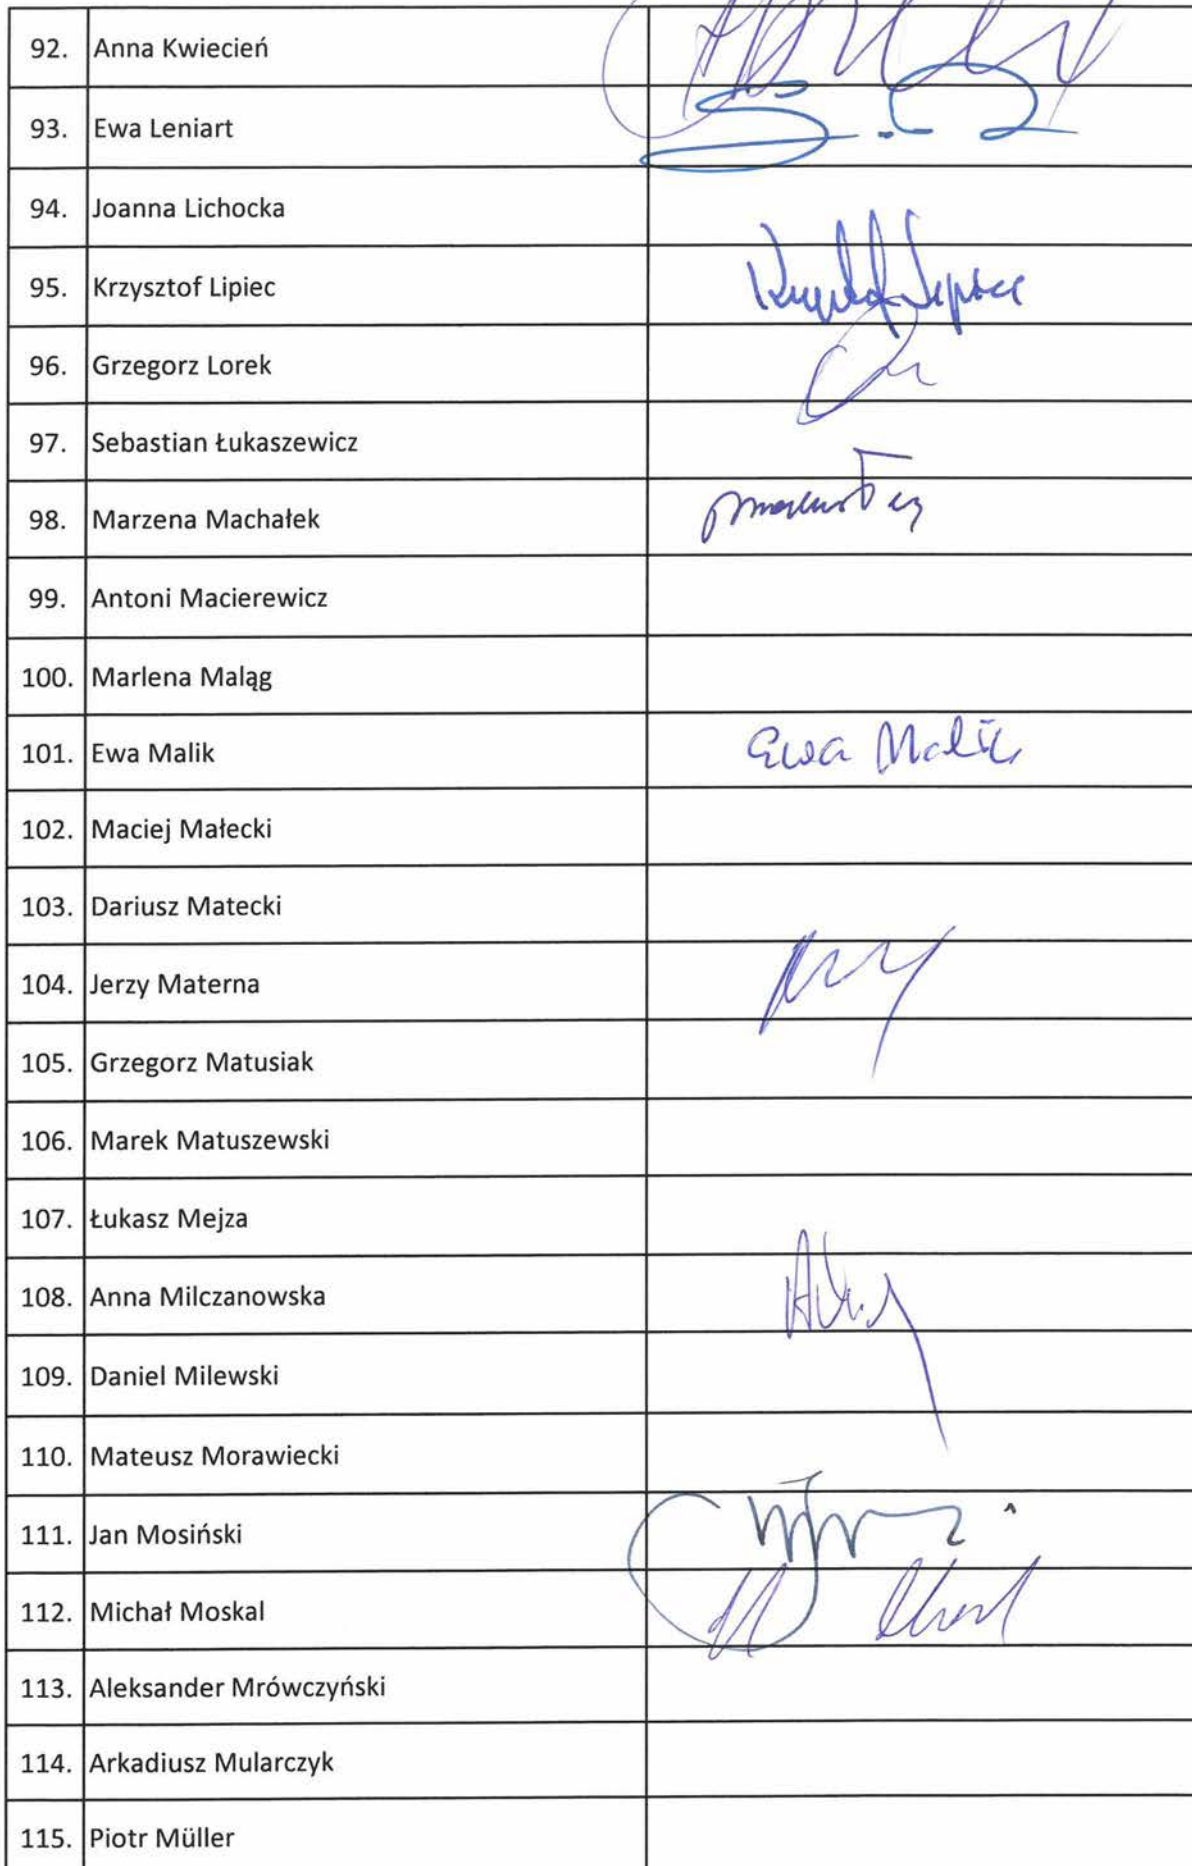 92. Anna Kwiecień
93. Ewa Leniart
94. Joanna Lichocka
95. Krzysztof Lipiec Krzysztof Lipiec
96. Grzegorz Lorek
97. Sebastian Łukaszewicz
98. Marzena Machałek
99. Antoni Macierewicz
100. Marlena Maląg
101. Ewa Malik Ewa Malik
102. Maciej Małecki
103. Dariusz Matecki
104. Jerzy Materna
105. Grzegorz Matusiak
106. Marek Matuszewski
107. Łukasz Mejza
108. Anna Milczanowska
109. Daniel Milewski
110. Mateusz Morawiecki
111. Jan Mosiński
112. Michał Moskal
113. Aleksander Mrówczyński
114. Arkadiusz Mularczyk
115. Piotr Müller